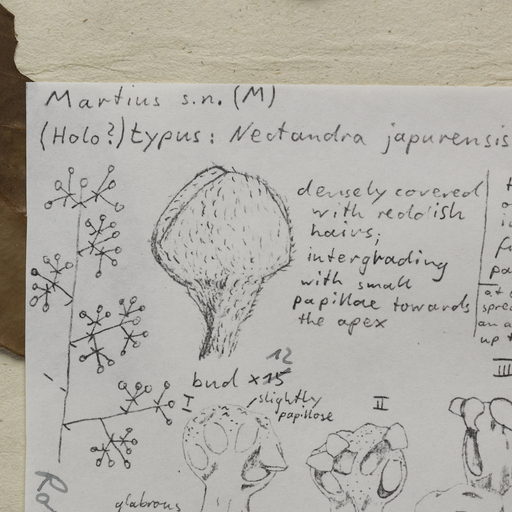 Martius s.n. (M)
(Holo?)typus: Nectandra japurensis
densely covered
with reddish
hairs;
intergrading
with small
papillae towards
the apex
12
bud x15
slightly
papillose
I
II
III
glabrous
up